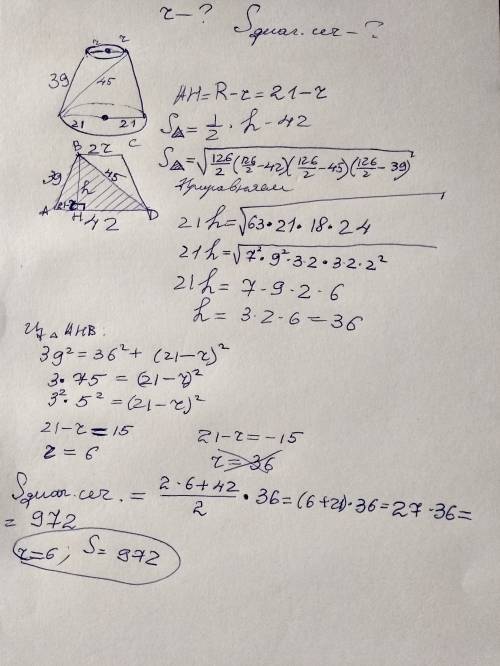 r - ? S диаг. сеч - ?
r r
39 45
21 21
AH = R - r = 21 - r
S△ = 1/2 · h · 42
S△ = √(126/2 (126/2 - 42)(126/2 - 45)(126/2 - 39))
Приравняем
B 2r C
39 h 45
A 21-r H D
42
21h = √(63·21·18·24)
21h = √(7²·9²·3·2·3·2·2²)
21h = 7·9·2·6
h = 3·2·6 = 36
Из △ AHB:
39² = 36² + (21-r)²
3·75 = (21-r)²
3²·5² = (21-r)²
21-r = 15 21-r = -15
r = 6 r = 36
S диаг. сеч. = (2·6+42)/2 · 36 = (6+21)·36 = 27·36 =
= 972
r=6; S = 972